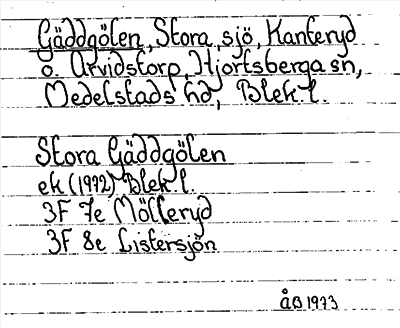 Gäddgölen, Stora, sjö, Kanteryd
o. Arvidstorp, Hjortsberga sn,
Medelstads hd, Blek. l.
Stora Gäddgölen
ek (1972) Blek l.
3F 7e Mölleryd
3F 8e Listersjön
ÅB 1973